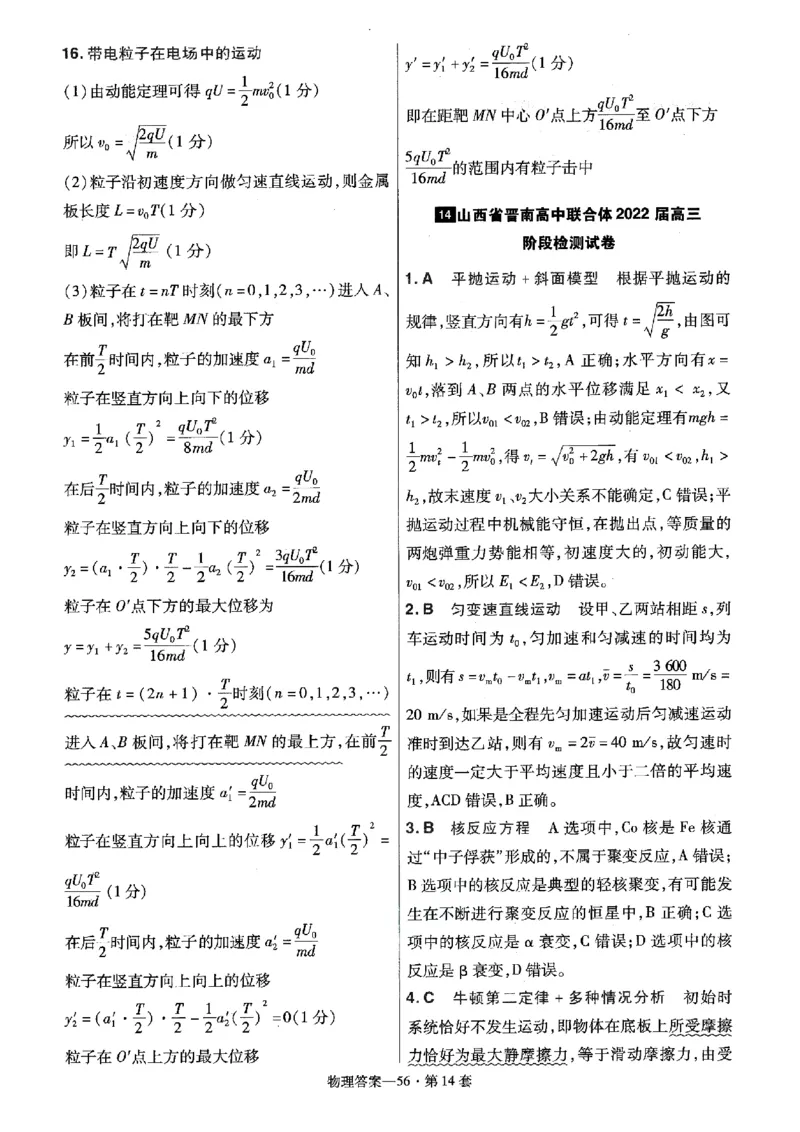 16. 带电粒子在电场中的运动
(1)由动能定理可得 qU = 1/2 mv₀²(1 分)
所以 v₀ = √(2qU/m) (1 分)
(2)粒子沿初速度方向做匀速直线运动,则金属
板长度 L = v₀T(1 分)
即 L = T √(2qU/m) (1 分)
(3)粒子在 t = nT 时刻(n = 0,1,2,3,⋯)进入 A、
B 板间,将打在靶 MN 的最下方
在前 T/2 时间内,粒子的加速度 a₁ = qU₀/md
粒子在竖直方向上向下的位移
y₁ = 1/2 a₁ (T/2)² = qU₀T²/8md (1 分)
在后 T/2 时间内,粒子的加速度 a₂ = qU₀/2md
粒子在竖直方向上向下的位移
y₂ = (a₁ · T/2) · T/2 − 1/2 a₂ (T/2)² = 3qU₀T²/16md (1 分)
粒子在 O′点下方的最大位移为
y = y₁ + y₂ = 5qU₀T²/16md (1 分)
粒子在 t = (2n + 1) · T/2 时刻(n = 0,1,2,3,⋯)
进入 A、B 板间,将打在靶 MN 的最上方,在前 T/2
时间内,粒子的加速度 a₁′ = qU₀/2md
粒子在竖直方向上向上的位移 y₁′ = 1/2 a₁′(T/2)² =
qU₀T²/16md (1 分)
在后 T/2 时间内,粒子的加速度 a₂′ = qU₀/md
粒子在竖直方向上向上的位移
y₂′ = (a₁′ · T/2) · T/2 − 1/2 a₂′(T/2)² = 0(1 分)
粒子在 O′点上方的最大位移
y′ = y₁′ + y₂′ = qU₀T²/16md (1 分)
即在距靶 MN 中心 O′点上方 qU₀T²/16md 至 O′点下方
5qU₀T²/16md 的范围内有粒子击中
14 山西省晋南高中联合体 2022 届高三
阶段检测试卷
1. A 平抛运动 + 斜面模型 根据平抛运动的
规律,竖直方向有h = 1/2 gt²,可得 t = √(2h/g),由图可
知 h₁ > h₂,所以t₁ > t₂,A 正确;水平方向有x =
v₀t,落到 A、B 两点的水平位移满足 x₁ < x₂,又
t₁ > t₂,所以v₀₁ < v₀₂,B 错误;由动能定理有mgh =
1/2 mvₜ² − 1/2 mv₀²,得 vₜ = √(v₀² + 2gh),有 v₀₁ < v₀₂,h₁ >
h₂,故末速度 v₁、v₂大小关系不能确定,C 错误;平
抛运动过程中机械能守恒,在抛出点,等质量的
两炮弹重力势能相等,初速度大的,初动能大,
v₀₁ < v₀₂,所以 E₁ < E₂,D 错误。
2. B 匀变速直线运动 设甲、乙两站相距 s,列
车运动时间为 t₀,匀加速和匀减速的时间均为
t₁,则有 s = vₘt₀ − vₘt₁,vₘ = at₁,v̄ = s/t₀ = 3 600/180 m/s =
20 m/s,如果是全程先匀加速运动后匀减速运动
准时到达乙站,则有 vₘ = 2v̄ = 40 m/s,故匀速时
的速度一定大于平均速度且小于二倍的平均速
度,ACD 错误,B 正确。
3. B 核反应方程 A 选项中,Co 核是 Fe 核通
过“中子俘获”形成的,不属于聚变反应,A 错误;
B 选项中的核反应是典型的轻核聚变,有可能发
生在不断进行聚变反应的恒星中,B 正确;C 选
项中的核反应是 α 衰变,C 错误;D 选项中的核
反应是 β 衰变,D 错误。
4. C 牛顿第二定律 + 多种情况分析 初始时
系统恰好不发生运动,即物体在底板上所受摩擦
力恰好为最大静摩擦力,等于滑动摩擦力,由受
物理答案—56 · 第 14 套